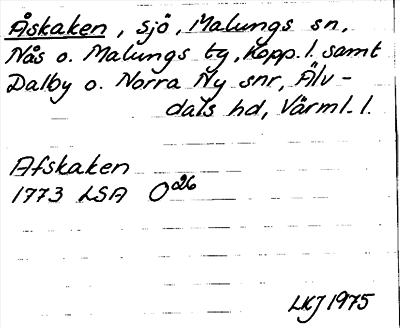 Åskaken, sjö, Malungs sn,
Nås o. Malungs tg, Kopp. l. samt
Dalby o. Norra Ny snr, Älv-
dals hd, Värml. l.
Afskaken
1773 LSA O26
LKJ 1975